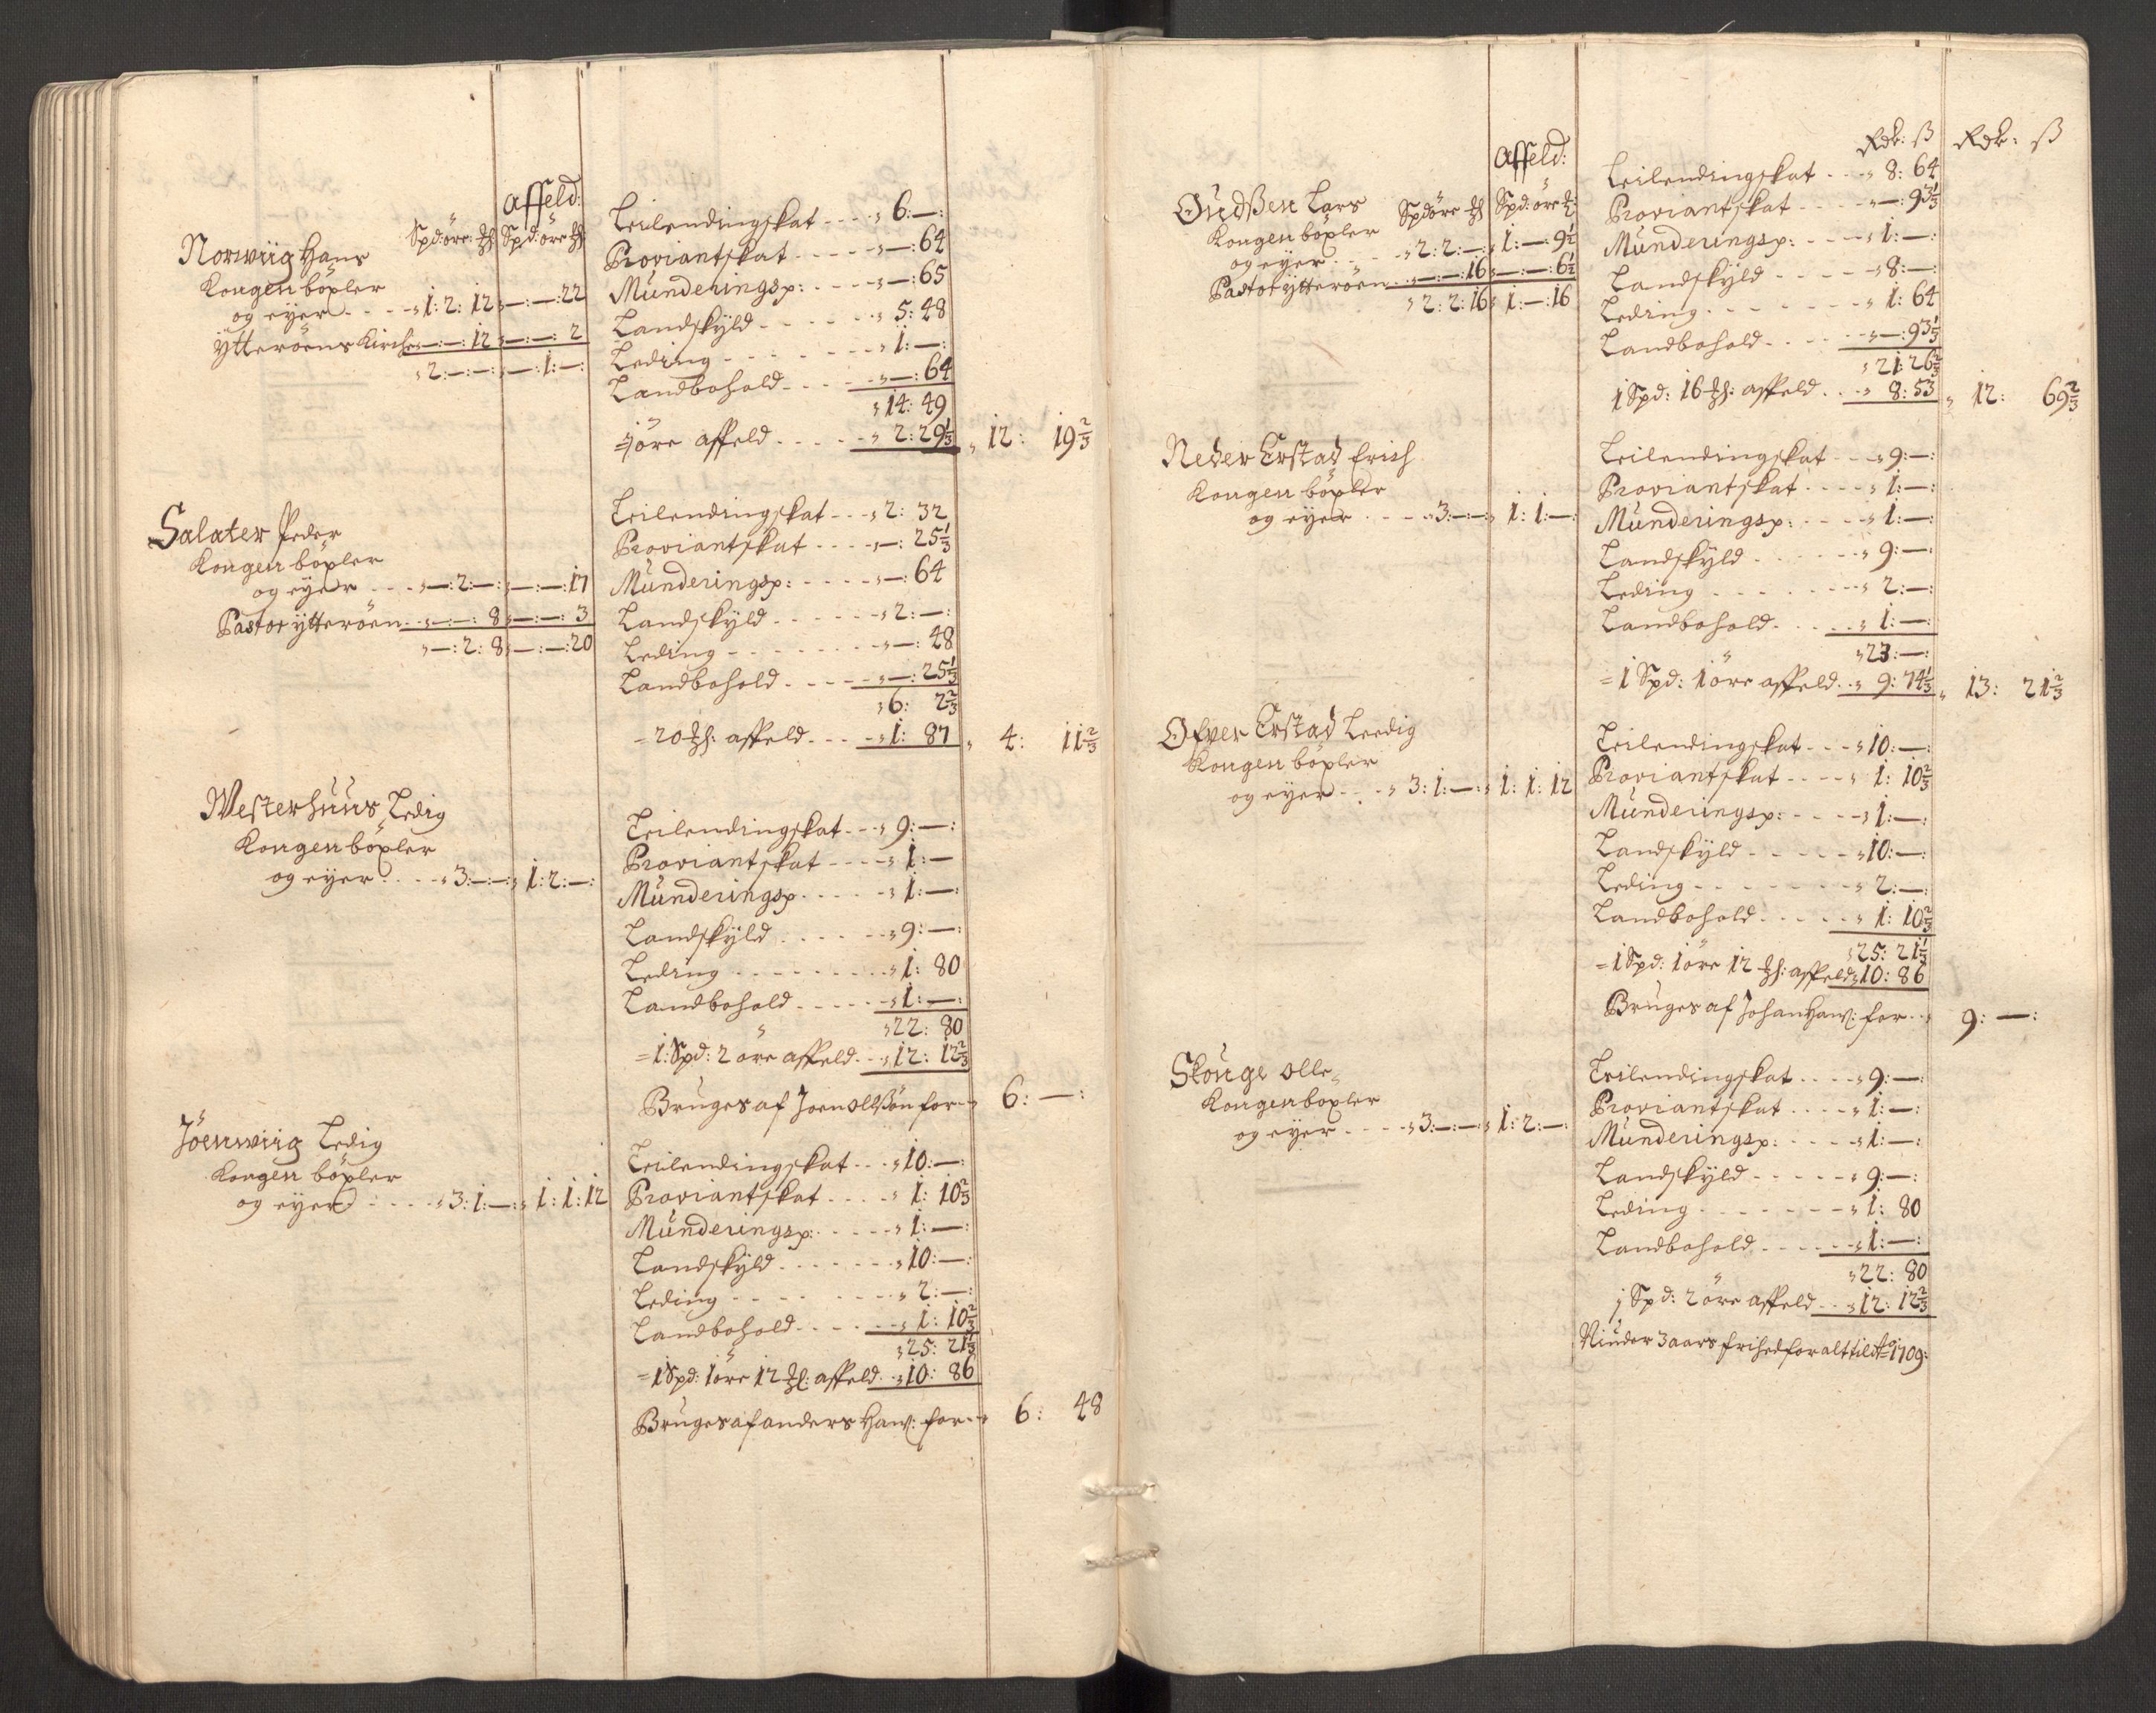 affeld:
Spd: öre: Spd: öre
Norwiig Hans
Kongen böxler
og eyer - - - - 1: 2: 12 —: —: 22
Ytteröens Kirche —: —: 12 —: —: 2
2: —: —: —: 1: —:
Leilendingskat - - - - 6: —:
Proviantskat - - - - - —: 64
Munderingsp: - - - - - —: 65
Landskyld - - - - - - 5: 48
Leding - - - - - - - 1: —:
Landbohold - - - - - —: 64
14: 49
= 1 öre affeld - - - - - 2: 29 1/3 12: 19 2/3
Salater Peder
Kongen böxler
og eyer - - - —: 2: —: —: —: 17
Pastor ytteröen - - —: —: 8 —: —: 3
—: 2: 8 —: —: 20
Leilendingskat - - - 2: 32
Proviantskat - - - - —: 25 1/3
Munderingsp: - - - - - —: 64
Landskyld - - - - - - 2: —:
Leding - - - - - - - —: 48
Landbohold - - - - - —: 25 1/3
6: 2 2/3
= 20 affeld - - - - 1: 87 4: 11 2/3
Westerhuus Ledig
Kongen böxler
og eyer - - - - 3: —: —: 1: 2: —:
Leilendingskat - - - 9: —:
Proviantskat - - - - 1: —
Munderingsp - - - - - 1: —:
Landskyld - - - - - - 9: —:
Leding - - - - - - - - 1: 80
Landbohold - - - - - 1: —:
22: 80
= 1: Spd: 2 öre affeld - - 12: 12 2/3
Bruges af Joen ollssön for - - 6: —:
Jöenwiig Ledig
Kongen böxler
og eyer - - - - 3: 1: —: 1: 1: 12
Leilendingskat - - - 10: —:
Proviantskat - - - - 1: 10 2/3
Munderingsp: - - - - - 1: —:
Landskyld - - - - - - 10: —:
Leding - - - - - - - - 2: —:
Landbohold - - - - - 1: 10 2/3
25: 21 1/3
= 1 Spd: 1 öre 12 affeld - - 10: 86
Bruges af anders Haw: for - - 6: 48
Rdr: ß Rdr: ß
affeld:
Spd öre Spd: öre
Oudssen Lars
Kongen böxler
og eyer - - - - 2: 2: —: 1: —: 9 1/2
Pastor ytteröen - - —: —: 16 —: —: 6 1/2
2: 2: 16 1: —: 16
Leilendingskat - - - 8: 64
Proviantskat - - - - —: 93 1/3
Munderingsp: - - - - 1: —:
Landskyld - - - - - 8: —:
Leding - - - - - - - 1: 64
Landbohold - - - - - —: 93 1/3
21: 26 2/3
1 Spd: 16 affeld - - - 8: 53 12: 69 2/3
Neder Erstad Erich
Kongen böxler
og eyer - - - - 3: —: —: 1: 1: —:
Leilendingskat - - - 9: —:
Proviantskat - - - - 1: —:
Munderingsp: - - - - - 1: —:
Landskyld - - - - - - 9: —:
Leding - - - - - - - - 2: —:
Landbohold - - - - - 1: —:
23: —:
= 1 Spd: 1 öre affeld - - 9: 74 1/3 13: 21 2/3
Ofver Erstad Leedig
Kongen böxler
og eyer - - - 3: 1: —: 1: 1: 12
Leilendingskat - - - 10: —:
Proviantskat - - - - 1: 10 2/3
Munderingsp: - - - - 1: —:
Landskyld - - - - - 10: —:
Leding - - - - - - - 2: —:
Landbohold - - - - - 1: 10 2/3
25: 21 1/3
= 1 Spd: 1 öre 12 affeld: 10: 86
Bruges af Johan Haw: for - - 9: —:
Skouge olle
Kongen boxler
og eyer - - - - 3: —: —: 1: 2: —:
Leilendingskat - - - - 9: —:
Proviantskat - - - - 1: —:
Munderingsp: - - - - - 1: —:
Landskyld - - - - - 9: —:
Leding - - - - - - - 1: 80
Landbohold - - - - - 1: —:
22: 80
1 Spd: 2 öre affeld - - - 12: 12 2/3
Niuder 3 aars frihed for alt til Ao 1709: